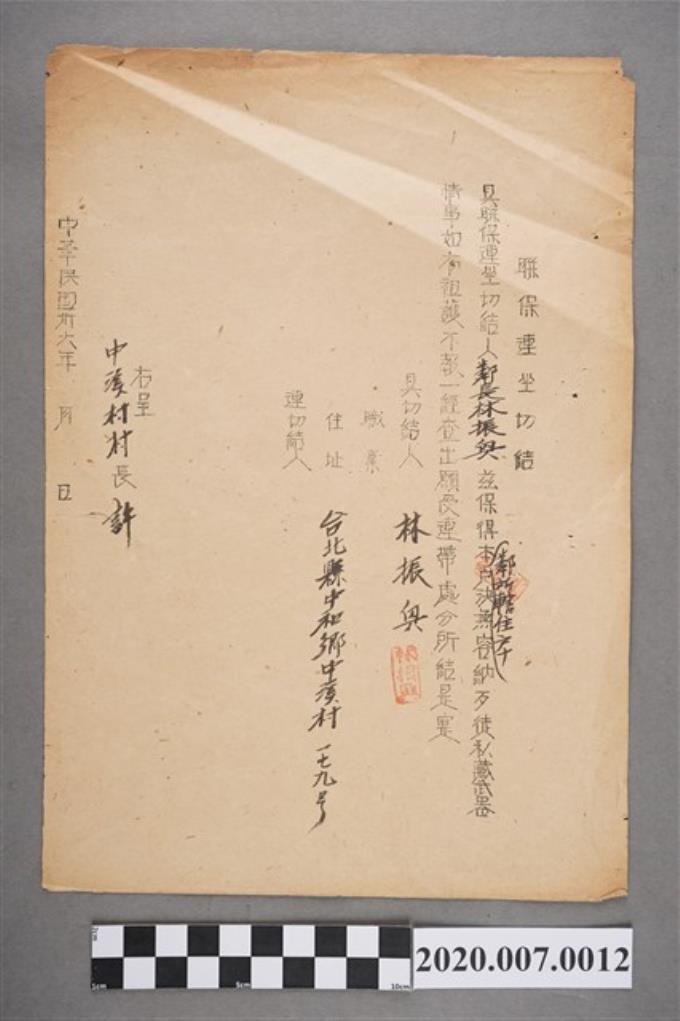 聯保連坐切結
具聯保連坐切結人鄰長林振興茲保得本戶決無容納歹徒私藏武器
鄰所轄住
情事如有袒護不報一經查出願受連帶處分所結是實
具切結人 林振興
職業
住址 台北縣中和鄉中溪村一七九号
連切結人
右呈
中溪村村長 許
中華民國卅六年 月 日
1cm 5cm 10cm
2020.007.0012